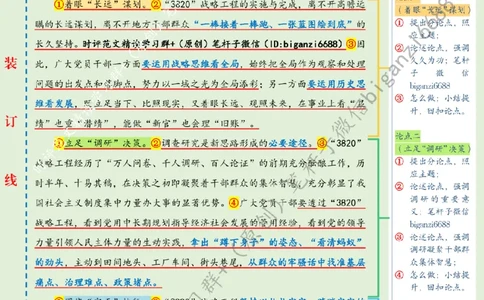 ①着眼“长远”谋划。②“3820”战略工程的实施与完成，离不开高瞻远
瞩的长远谋划，离不开地方干部群众“一棒接着一棒跑、一张蓝图绘到底”的
长久坚持。时评范文精读学习群+（原创）笔杆子微信（ID:biganzi6688）③因
此，广大党员干部一方面要运用战略思维看全局，始终把全局作为观察和处理
问题的出发点和落脚点，努力以一域之光为全局添彩；另一方面要运用历史思
维看发展，既立足当下、比照现实，又着眼长远、观照未来，在事业上看“显
绩”也重“潜绩”，能做“新官”也会理“旧账”。
①立足“调研”决策。②调查研究是新思路形成的必要途径。③“3820”
战略工程经历了“万人问卷、千人调研、百人论证”的前期充分酝酿工作，历
时半年、十易其稿，在决策之初即凝聚着干部群众的集体智慧，充分彰显了我
国社会主义制度集中力量办大事的显著优势。④广大党员干部要透过“3820”
战略工程，看到党用中长期规划指导经济社会发展的使用经验，看到党的领导
力量引领人民主体力量的生动实践，拿出“蹲下身子”的姿态、“看清蚂蚁”
的劲头，主动到田间地头、工厂车间、街头巷尾，从群众的牢骚话中找准基层
痛点、治理难点、政策堵点。
装
订
线
（着眼“长远”谋划）
① 提出分论点，照
应主题；
② 论述论点，强调
久久为功；笔杆
子微信
biganzi6688
③ 怎么做；小结提
升、回扣论点。
论点二
（立足“调研”决策）
① 提出分论点、照
应主题；
② 论述论点，强调
调研的重要意
义；笔杆子微信
biganzi6688
③ 论述论点，强调
调研凝聚干部群
众集体智慧；
④ 怎么做，小结提
升、回扣论点。